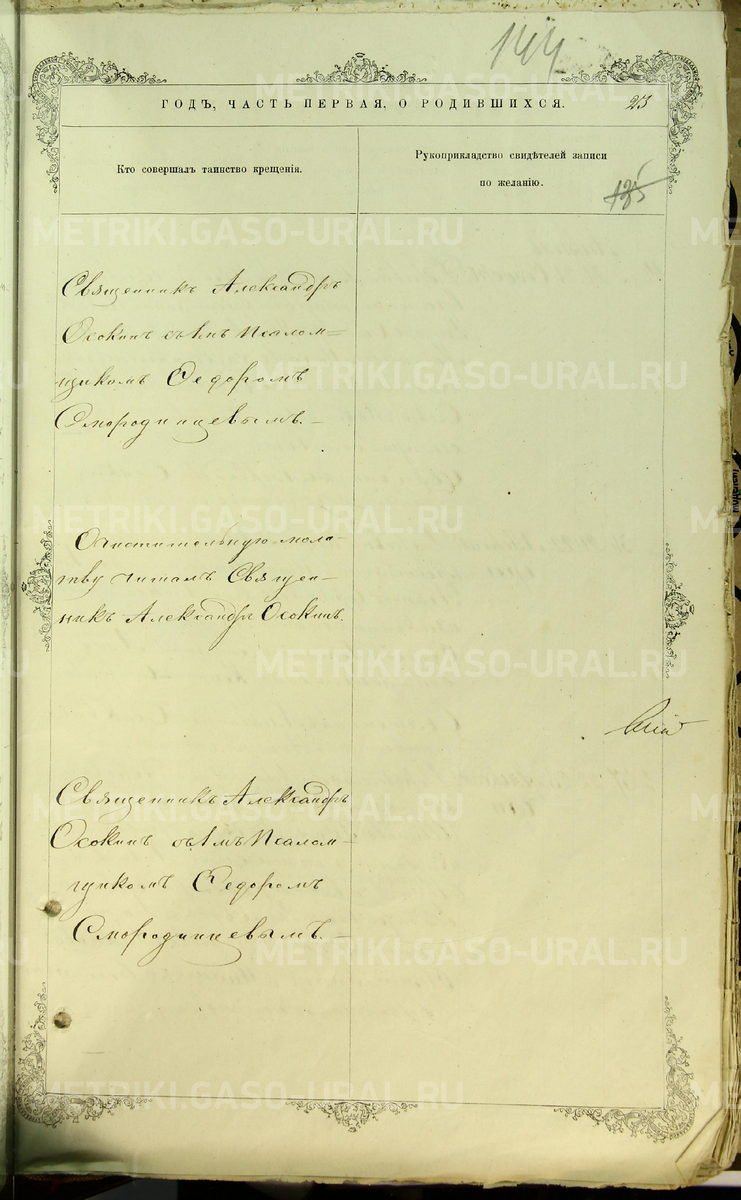 144
ГОДЪ, ЧАСТЬ ПЕРВАЯ, О РОДИВШИХСЯ.
23
Кто совершалъ таинство крещенія.
Рукоприкладство свидѣтелей записи
по желанію.
125
Священникъ Александръ
Осокинъ съ 1мъ Псалом=
щикомъ Ѳедоромъ
Смородинцевымъ.
Очистительную моли-
тву читалъ Священ-
никъ Александръ Осокинъ.
Священникъ Александръ
Осокинъ съ 1мъ Псалом-
щикомъ Ѳедоромъ
Смородинцевымъ.
METRIKI.GASO-URAL.RU